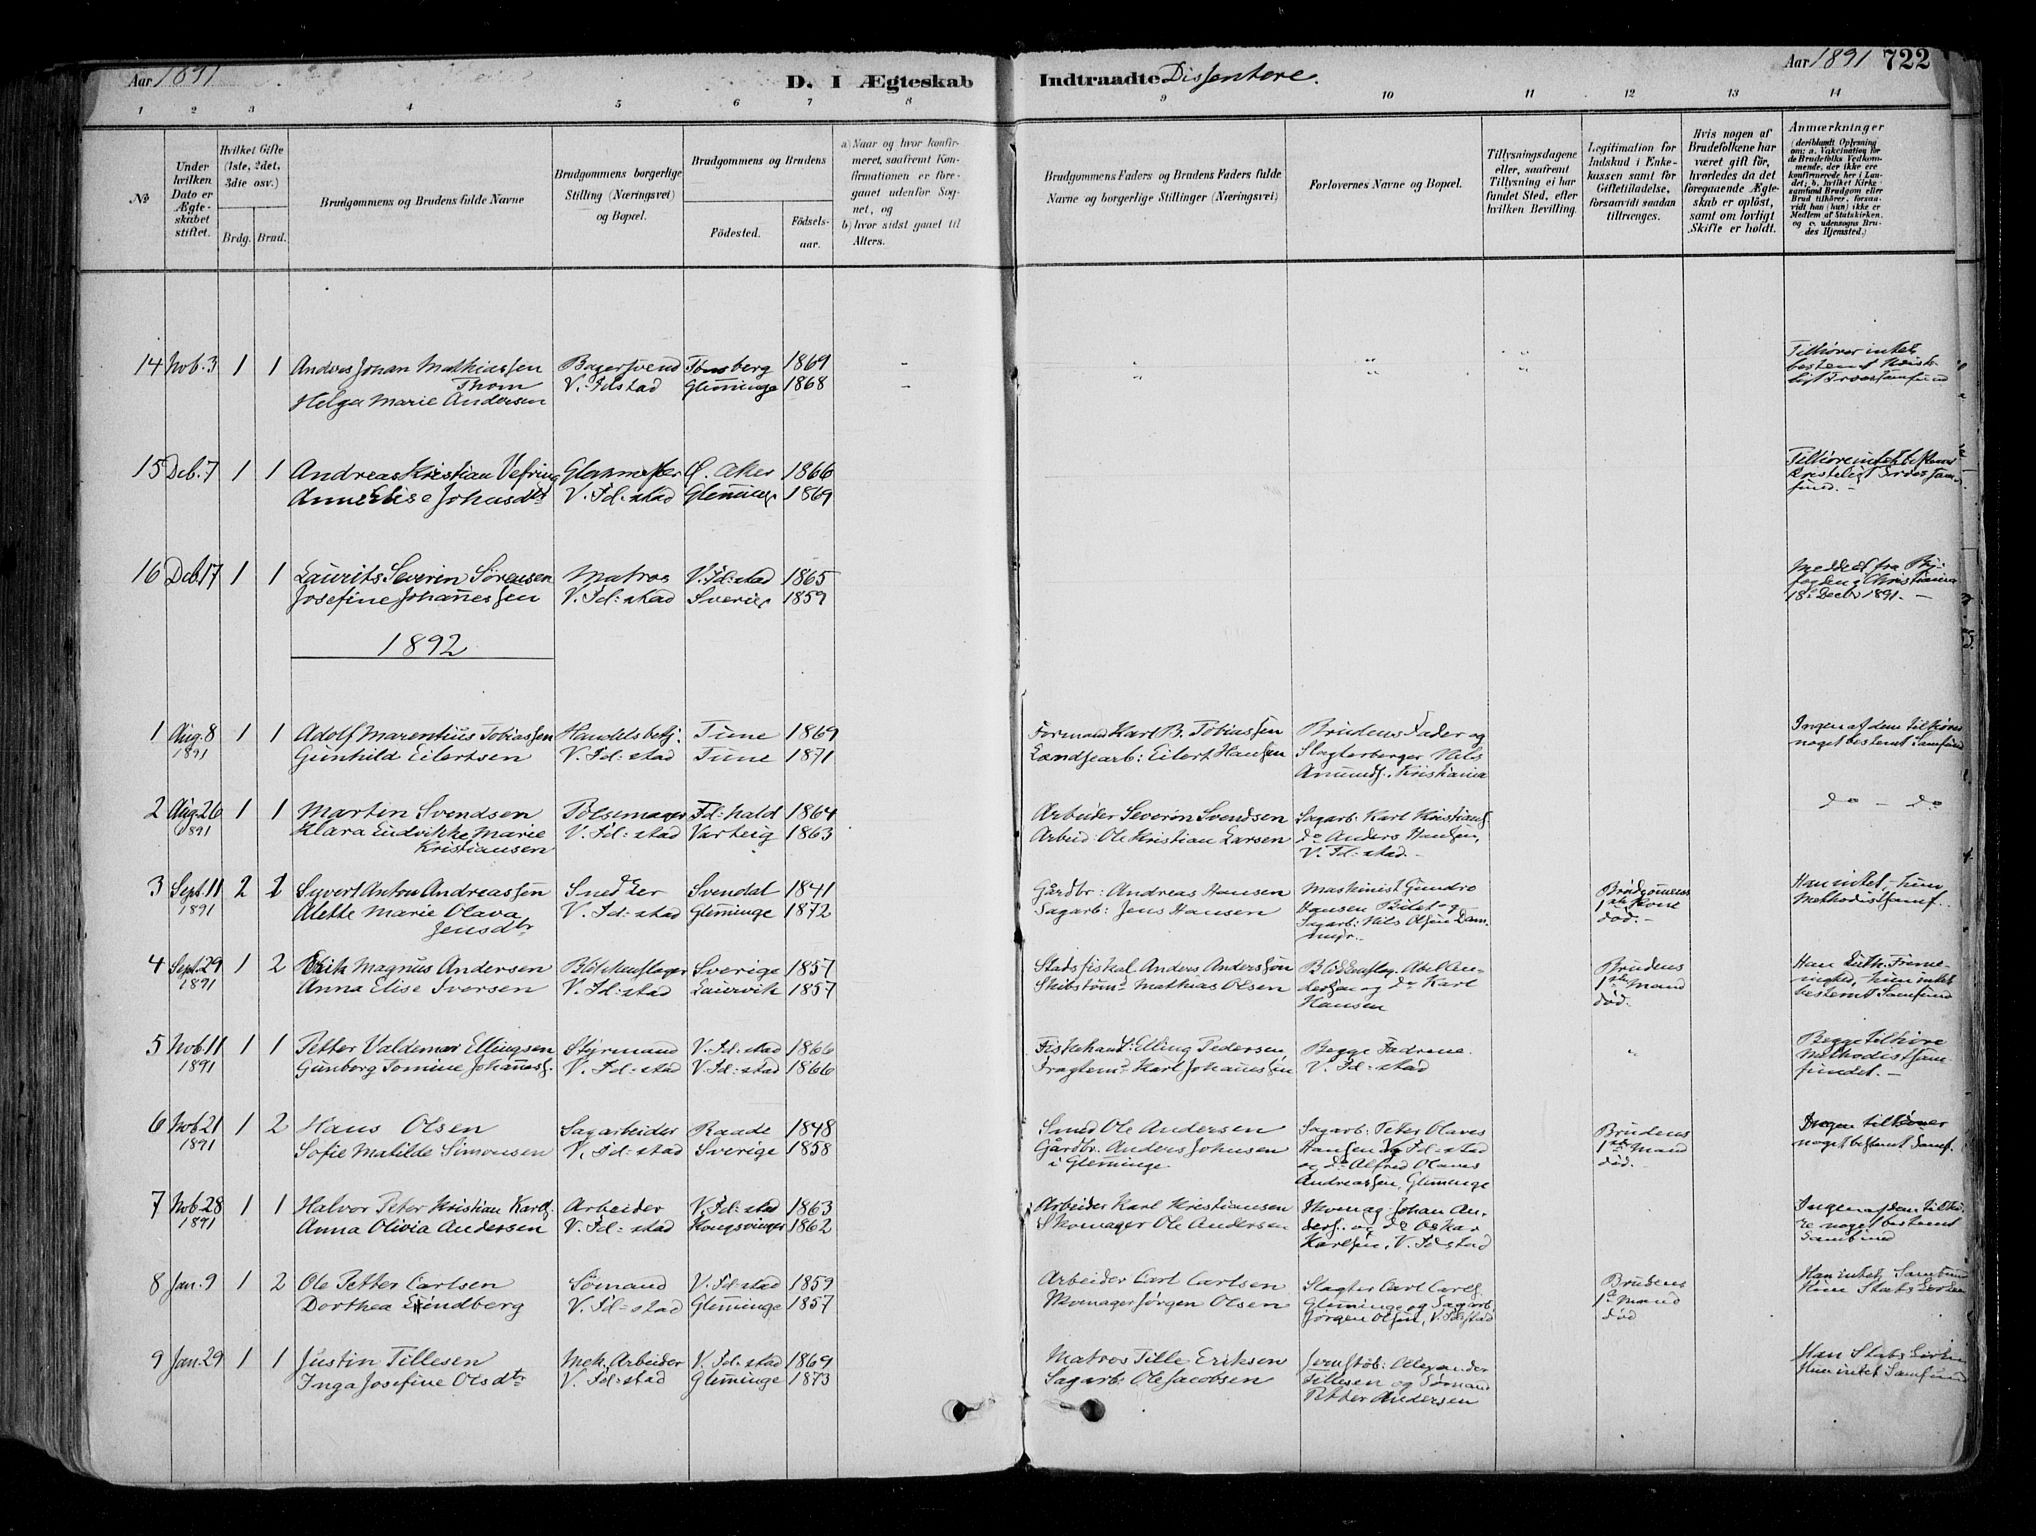 Aar 1891
D. I Ægteskab Indtraadte Dissentere.
Aar 1891 722
1 2 3 4 5 6 7 8 9 10 11 12 13 14
No
Under hvilken Dato er Ægteskabet stiftet.
Hvilket Gifte (1ste, 2det, 3die osv.)
Brdg. Brud.
Brudgommens og Brudens fulde Navne
Brudgommens borgerlige Stilling (Næringsvei) og Bopæl.
Brudgommens og Brudens
Födested. Födselsaar.
a) Naar og hvor konfirmeret, saafremt Konfirmationen er foregaaet udenfor Sognet, og
b) hvor sidst gaaet til Alters.
Brudgommens Faders og Brudens Faders fulde Navne og borgerlige Stillinger (Næringsvei)
Forlovernes Navne og Bopæl.
Tillysningsdagene eller, saafremt Tillysning ei har fundet Sted, efter hvilken Bevilling.
Legitimation for Indskud i Enkekassen samt for Giftetilladelse, forsaavidt saadan tiltrænges.
Hvis nogen af Brudefolkene har været gift för, hvorledes da det foregaaende Ægteskab er oplöst, samt om lovligt Skifte er holdt.
Anmærkninger
(deriblandt Oplysning om: a. Vakcination for de Brudefolks Vedkommende, der ikke ere konfirmerede her i Landet; b. hvilket Kirkesamfund Brudgom eller Brud tilhörer, forsaavidt han (hun) ikke er Medlem af Statskirken, og c. udensogns Brudes Hjemsted.)
14 Nob. 3 1 1 Andreas Johan Mathiassen Bagersvend Tønsberg 1869
Thom V. Fdstad Glemminge 1868
Helga Marie Andersen
Tilhører intet
bestemt Kristeligt Troessamfund
15 Deb. 7 1 1 Andreas Kristian Vefring Glasmester Ø. Aker 1866
Anne Elise Johnsdtr V. Fd:stad Glemminge 1869
Tilhører intet bestemt
Kristeligt Troessamfund. -
16 Deb. 17 1 1 Laurits Severin Sørensen Matros V. Fd:stad 1865
Josefine Johannessen V. Fd:stad Sverige 1859
Meddelt fra Byfogden i Christiania
18 Decbr 1891. -
1892
1 Aug. 8 1 1 Adolf Marentius Tobiassen Handelsbetj. Tune 1869 Formand Karl B. Tobiassen Brudens Fader og
1891 Gunhild Eilertsen V. Fd:stad Tune 1871 Landsearb: Eilert Hansen Slagterborger Nils
Amunds., Kristiania
Ingen af dem tilhører
noget bestemt Samfund
2 Aug. 26 1 1 Martin Svendsen Pølsemager Fd:hald 1864 Arbeider Severin Svendsen Sagarb: Karl Kristians.
1891 Klara Ludvikke Marie V. Fd:stad Varteig 1863 Arbeid: Ole Kristian Larsen do Anders Hansen,
Kristiansen V. Fd:stad. -
do - do
3 Sept. 11 2 1 Syvert Anton Andreassen Snedker Svendal 1841 Gårdbr: Andreas Hansen Maskinist Gundro
1891 Alette Marie Olava V. Fd:stad Glemminge 1872 Sagarb: Jens Hansen Hansen
Jensdtr Sagarb: Nils Olsen
Brudgommens
1ste Kone
død. -
Han intet, - hun
Methodistsamf.
4 Sept. 29 1 2 Erik Magnus Andersen Blikkenslager Sverige 1857 Stadsfiskal Anders Andersson Blikkenslag. Abel An-
1891 Anna Elise Iversen V. Fd:stad Laurvik 1857 Skibstøm: Mathias Olsen dersen og do Karl
Hansen
Brudens
1ste Mand
død.
Han Luth. Frime-
nighed, hun intet
bestemt Samfund
5 Nob. 11 1 1 Petter Valdemar Ellingsen Styrmand V. Fd:stad 1866 Fiskehand: Elling Pedersen Begge Fædrene.
1891 Gunborg Tomine Johanness. V. Fd:stad V. Fd:stad 1866 Fragtem: Karl Johannessen V. Fd:stad
Begge tilhøre
Methodistsam-
fundet. -
6 Nob. 21 1 2 Hans Olsen Sagarbeider Raade 1848 Smed Ole Andersen Sagarb: Peter Olaves
1891 Sofie Matilde Simonsen V. Fd:stad Sverige 1858 Gårdbr. Anders Johnsen Hansen V. Fd:stad
i Glemminge og do Alfred Olaves
Andreassen, Glemminge
Brudens
1ste Mand
død. -
Ingen tilhører
noget bestemt Samf.
7 Nob. 28 1 1 Halvor Peter Kristian Karls. Arbeider V. Fd:stad 1863 Arbeider Karl Kristiansen Skomag: Johan An-
1891 Anna Olivia Andersen V. Fd:stad Kongsvinger 1862 Skomager Ole Andersen ders. og do Oskar
Karlsen, V. Fdstad
Ingen af dem tilhø-
re noget bestemt
Samfund
8 Jan. 9 1 2 Ole Petter Carlsen Sømand V. Fdstad 1859 Arbeider Carl Carlsen Slagter Carl Carls.
Dorthea Lindberg V. Fd:stad Glemminge 1857 Skomager Jørgen Olsen Glemminge og Sagarb.
Jørgen Olsen, V. Fdstad
Brudens
1ste Mand
død
Han intet Samfund
Hun Statskirken
9 Jan. 29 1 1 Justin Tillesen Mek. Arbeider V. Fd:stad 1869 Matros Tille Eriksen Jernstøb: Alexander
Inga Josefine Olsdtr V. Fd:stad Glemminge 1873 Sagarb: Ole Jacobsen Tillesen og Sømand
Petter Andersen
Han Statskirken
Hun intet Samfund